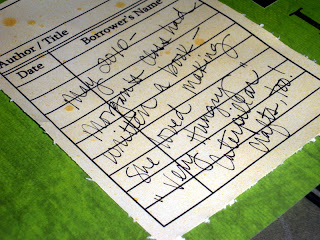 Author / Title
Borrower's Name
Date
May 2010 -
Morgan's class had
written a book -
she loved making
"Very Hungry
Caterpillar"
crafts, too.